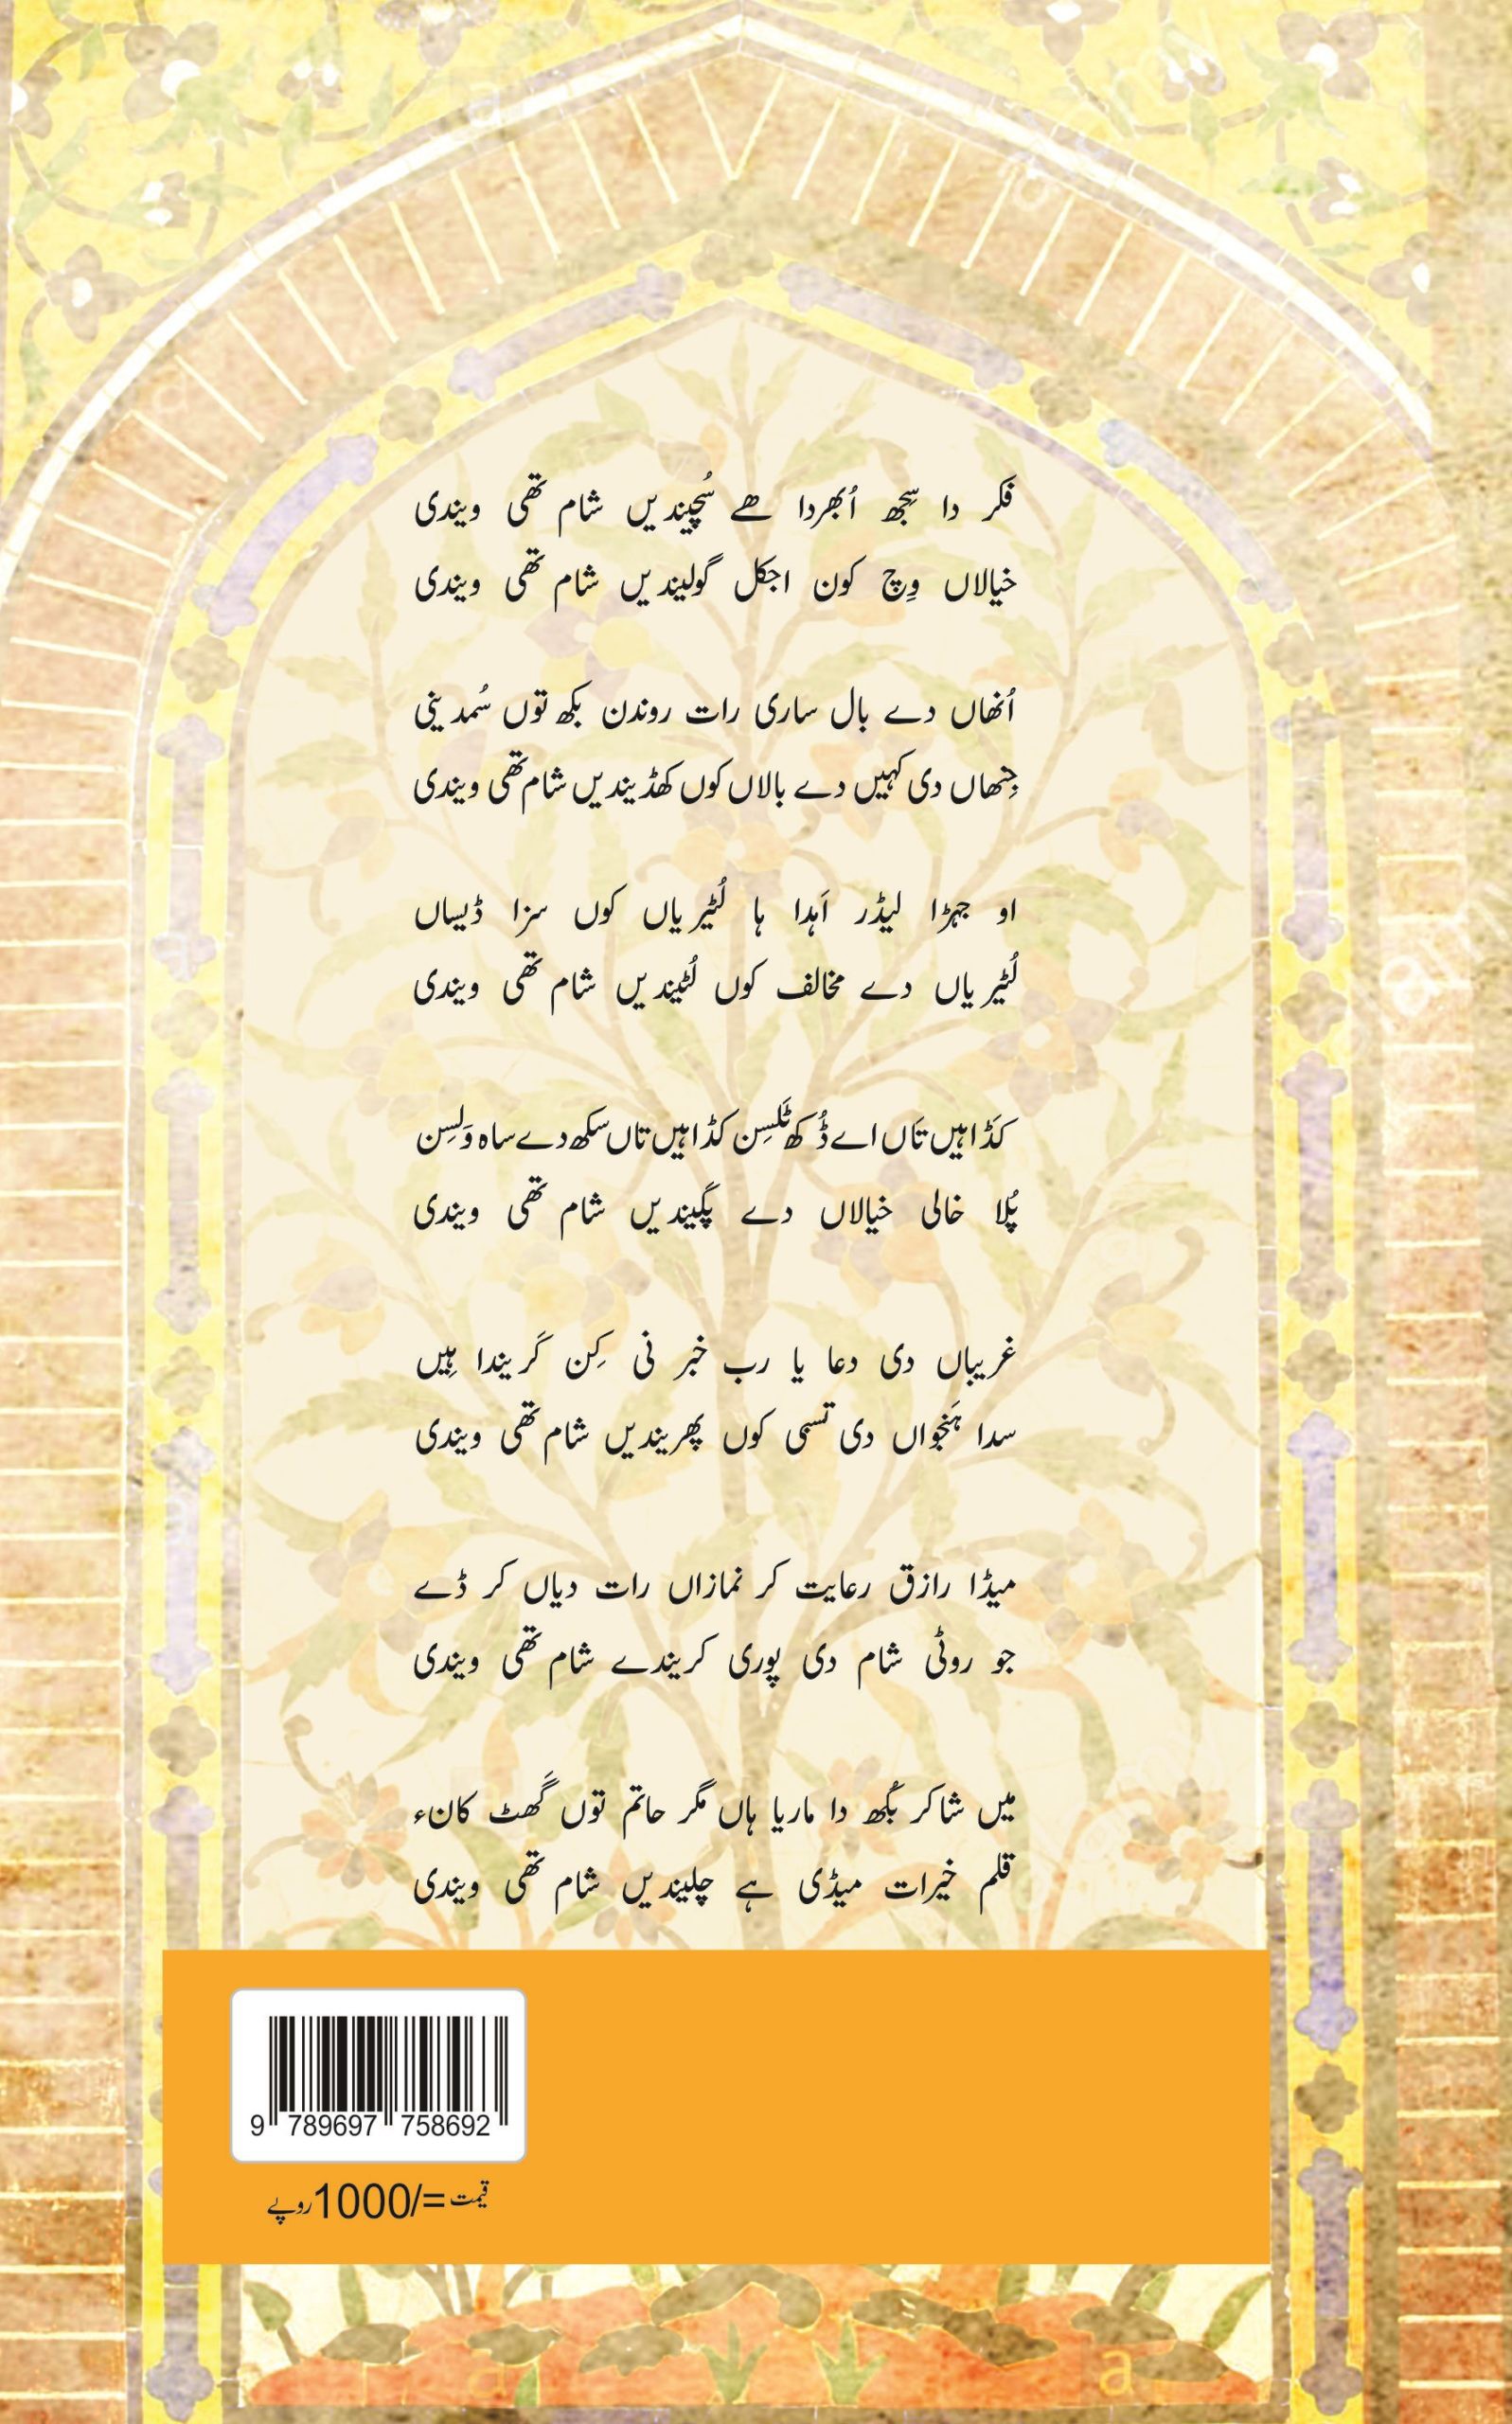 فکر دا سِجھ اُبھردا ھے سُچیندیں شام تھی ویندی
خیالاں وِچ کون اجکل گولیندیں شام تھی ویندی
اُنھاں دے بال ساری رات روندن بکھ توں سُمدینی
جِنھاں دی کہیں دے بالاں کوں کھڈیندیں شام تھی ویندی
او جہڑا لیڈر آہدا ہا لُٹیریاں کوں سزا ڈیساں
لُٹیریاں دے مخالف کوں لُٹیندیں شام تھی ویندی
کڈاہیں تاں اے ڈُکھ ٹلسِن کڈاہیں تاں سکھ دے ساہ وَلسِن
پُلا خالی خیالاں دے پکیندیں شام تھی ویندی
غریباں دی دعا یا رب خبر نی کِن کَریندا ہِیں
سدا ہَنجواں دی تسبی کوں پھریندیں شام تھی ویندی
میڈا رازق رعایت کر نمازاں رات دیاں کر ڈے
جو روٹی شام دی پوری کریندے شام تھی ویندی
میں شاکر بُکھ دا ماریا ہاں مگر حاتم توں گَھٹ کانء
قلم خیرات میڈی ہے چلیندیں شام تھی ویندی
9 789697 758692
قیمت =/1000 روپے